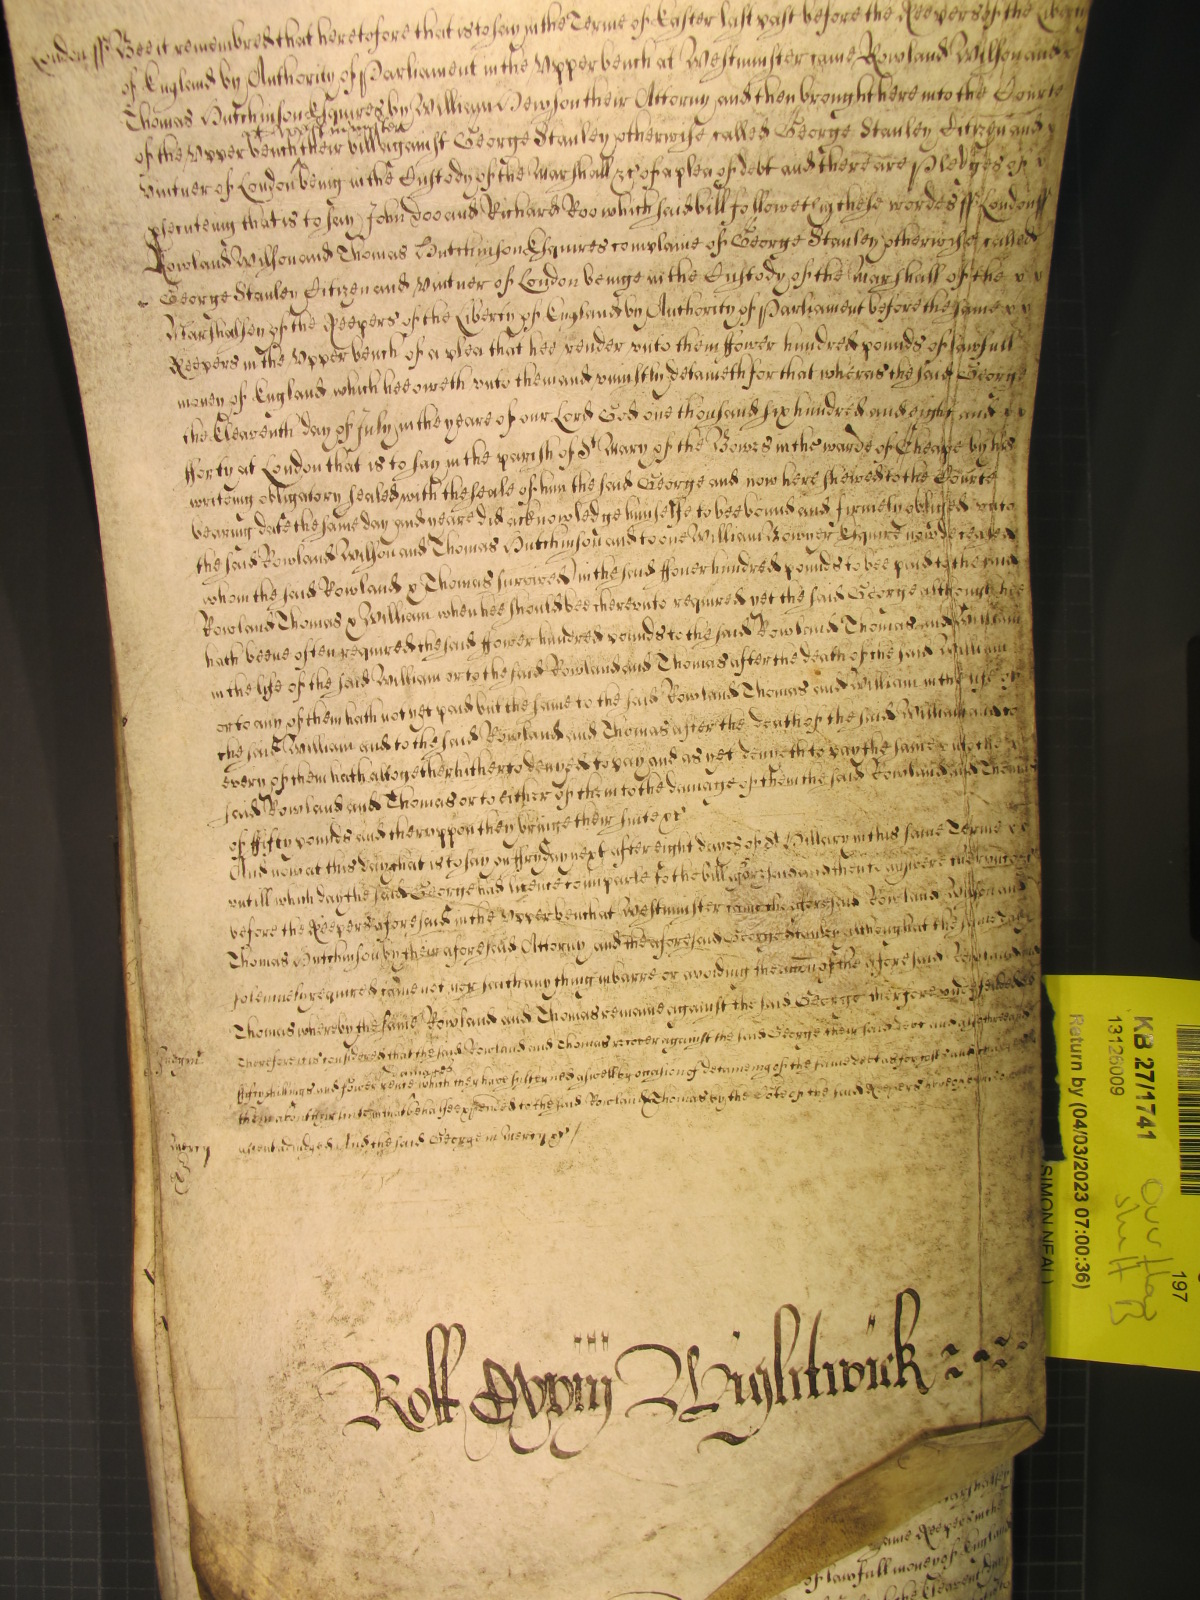 London ss Bee it remembred that heretofore that is to say in the Terme of Easter last past before the Keepers of the Liberty
of England by Authority of Parliament in the Upper bench at Westminster came Rowland Wilson and
Thomas Hutchinson Esquires by William Hewson their Attorny and then brought here into the Courte
of the Upper bench their bill against George Stanley otherwise called George Stanley Citizen and
vintner of London being in the Custody of the Marshall &c of a plea of debt and there are Pledges of
psecuteing that is to say John Doo and Richard Roo which said bill followeth in these wordes ss London ss
Rowland Wilson and Thomas Hutchinson Esquires complaine of George Stanley otherwise called
George Stanley Citizen and vintner of London beinge in the Custody of the Marshall of the
Marshalsey of the Keepers of the Liberty of England by Authority of Parliament before the same
Keepers in the Upper bench of a plea that hee render unto them ffower hundred pounds of lawfull
money of England which hee oweth unto them and uniustly detaineth for that wheras the said George
the Eleaventh day of July in the yeare of our Lord God one thousand six hundred and eight and
fforty at London that is to say in the parish of St Mary of the Bowes in the warde of Cheape by his
writeing obligatory sealed with the seale of him the said George and now here shewed to the Courte
beareing date the same day and yeare did acknowledge himselfe to bee bound and firmely obliged unto
the said Rowland Wilson and Thomas Hutchinson and to one William Esquire now deceased
whom the said Rowland & Thomas survived in the said ffower hundred pounds to bee paid to the said
Rowland Thomas & William when hee should bee thereunto required yet the said George although hee
hath beene often required the said ffower hundred pounds to the said Rowland Thomas and William
in the life of the said William or to the said Rowland and Thomas after the death of the said William
or to any of them hath not yet paid but the same to the said Rowland Thomas and William in the life of
the said William and to the said Rowland and Thomas after the death of the said William and to
every of them hath altogether hitherto denyed to pay and as yet denyeth to pay the same unto the
said Rowland and Thomas or to either of them to the damage of them the said Rowland and Thomas
of ffifty pounds and thereuppon they bringe their suite &c
And now at this day that is to say on ffryday next after eight dayes of St Hillary in this same Terme
untill which day the said George had licence to imparle to the bill aforesaid and then to answere
before the Keepers aforesaid in the Upper bench at Westminster came the aforesaid Rowland Wilson and
Thomas Hutchinson by their aforesaid Attorny and the aforesaid George Stanley although at the same day
solemnely required came not nor saith any thing in barre or avoiding the accon of the aforesaid Rowland and
Thomas whereby the same Rowland and Thomas remaine against the said George therfore undefended
Judgmt Therefore it is considered that the said Rowland and Thomas recover against the said George their said debt and also three and
damages
ffifty shillings and fower pence which they have susteyned aswell by occasion of detaineing of the same debt as for costs and
them about their suite in that behalfe expended to the said Rowland & Thomas by the Courte of the said Keepers here
Mercy assent adiudged And the said George in Mercy &c
Roll Wightwick
KB 27/1741
13126009
Return by (04/03/2023 07:00:36)
SIMON NEAL
197
same Keepers in the
of lawfull money of England
the Eleaventh day